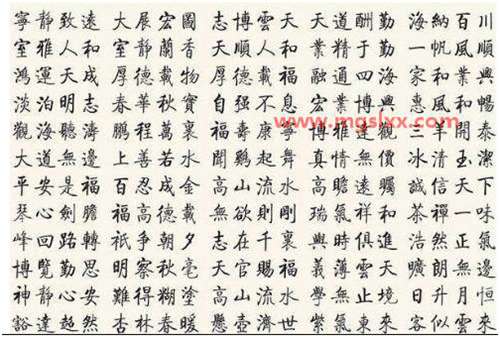 寧静致遠 大展宏圖 志博雲天 天道酬勤 海納百川
室雅人和 室静蘭香 大順人和 業精于勤 一帆風順
鴻運天成 厚德載物 厚德載福 融通四海 和業興
淡泊明志 春華秋實 自强不息 宏業博興 惠風和暢
www.mgslxx.com
觀海聽濤 鵬程萬裏 福壽康寧 博雅達觀 三羊開泰
大道無邊 上善若水 聞鷄起舞 真情無價 冰清玉潔
平安是福 百忍成金 高山流水 高瞻遠矚 誠信天下
琴心劍膽 福高德載 無欲則剛 瑞氣祥和 茶禪一味
峰回路轉 祇争朝夕 志在千裏 與時俱進 浩然正氣
博覽勤思 明察秋毫 天官賜福 義薄雲天 曠朗無邊
神静心安 難得糊塗 高山流水 學無止境 日升月恒
豁達超然 杏林春暖 懸壺濟世 紫氣東來 客似雲來